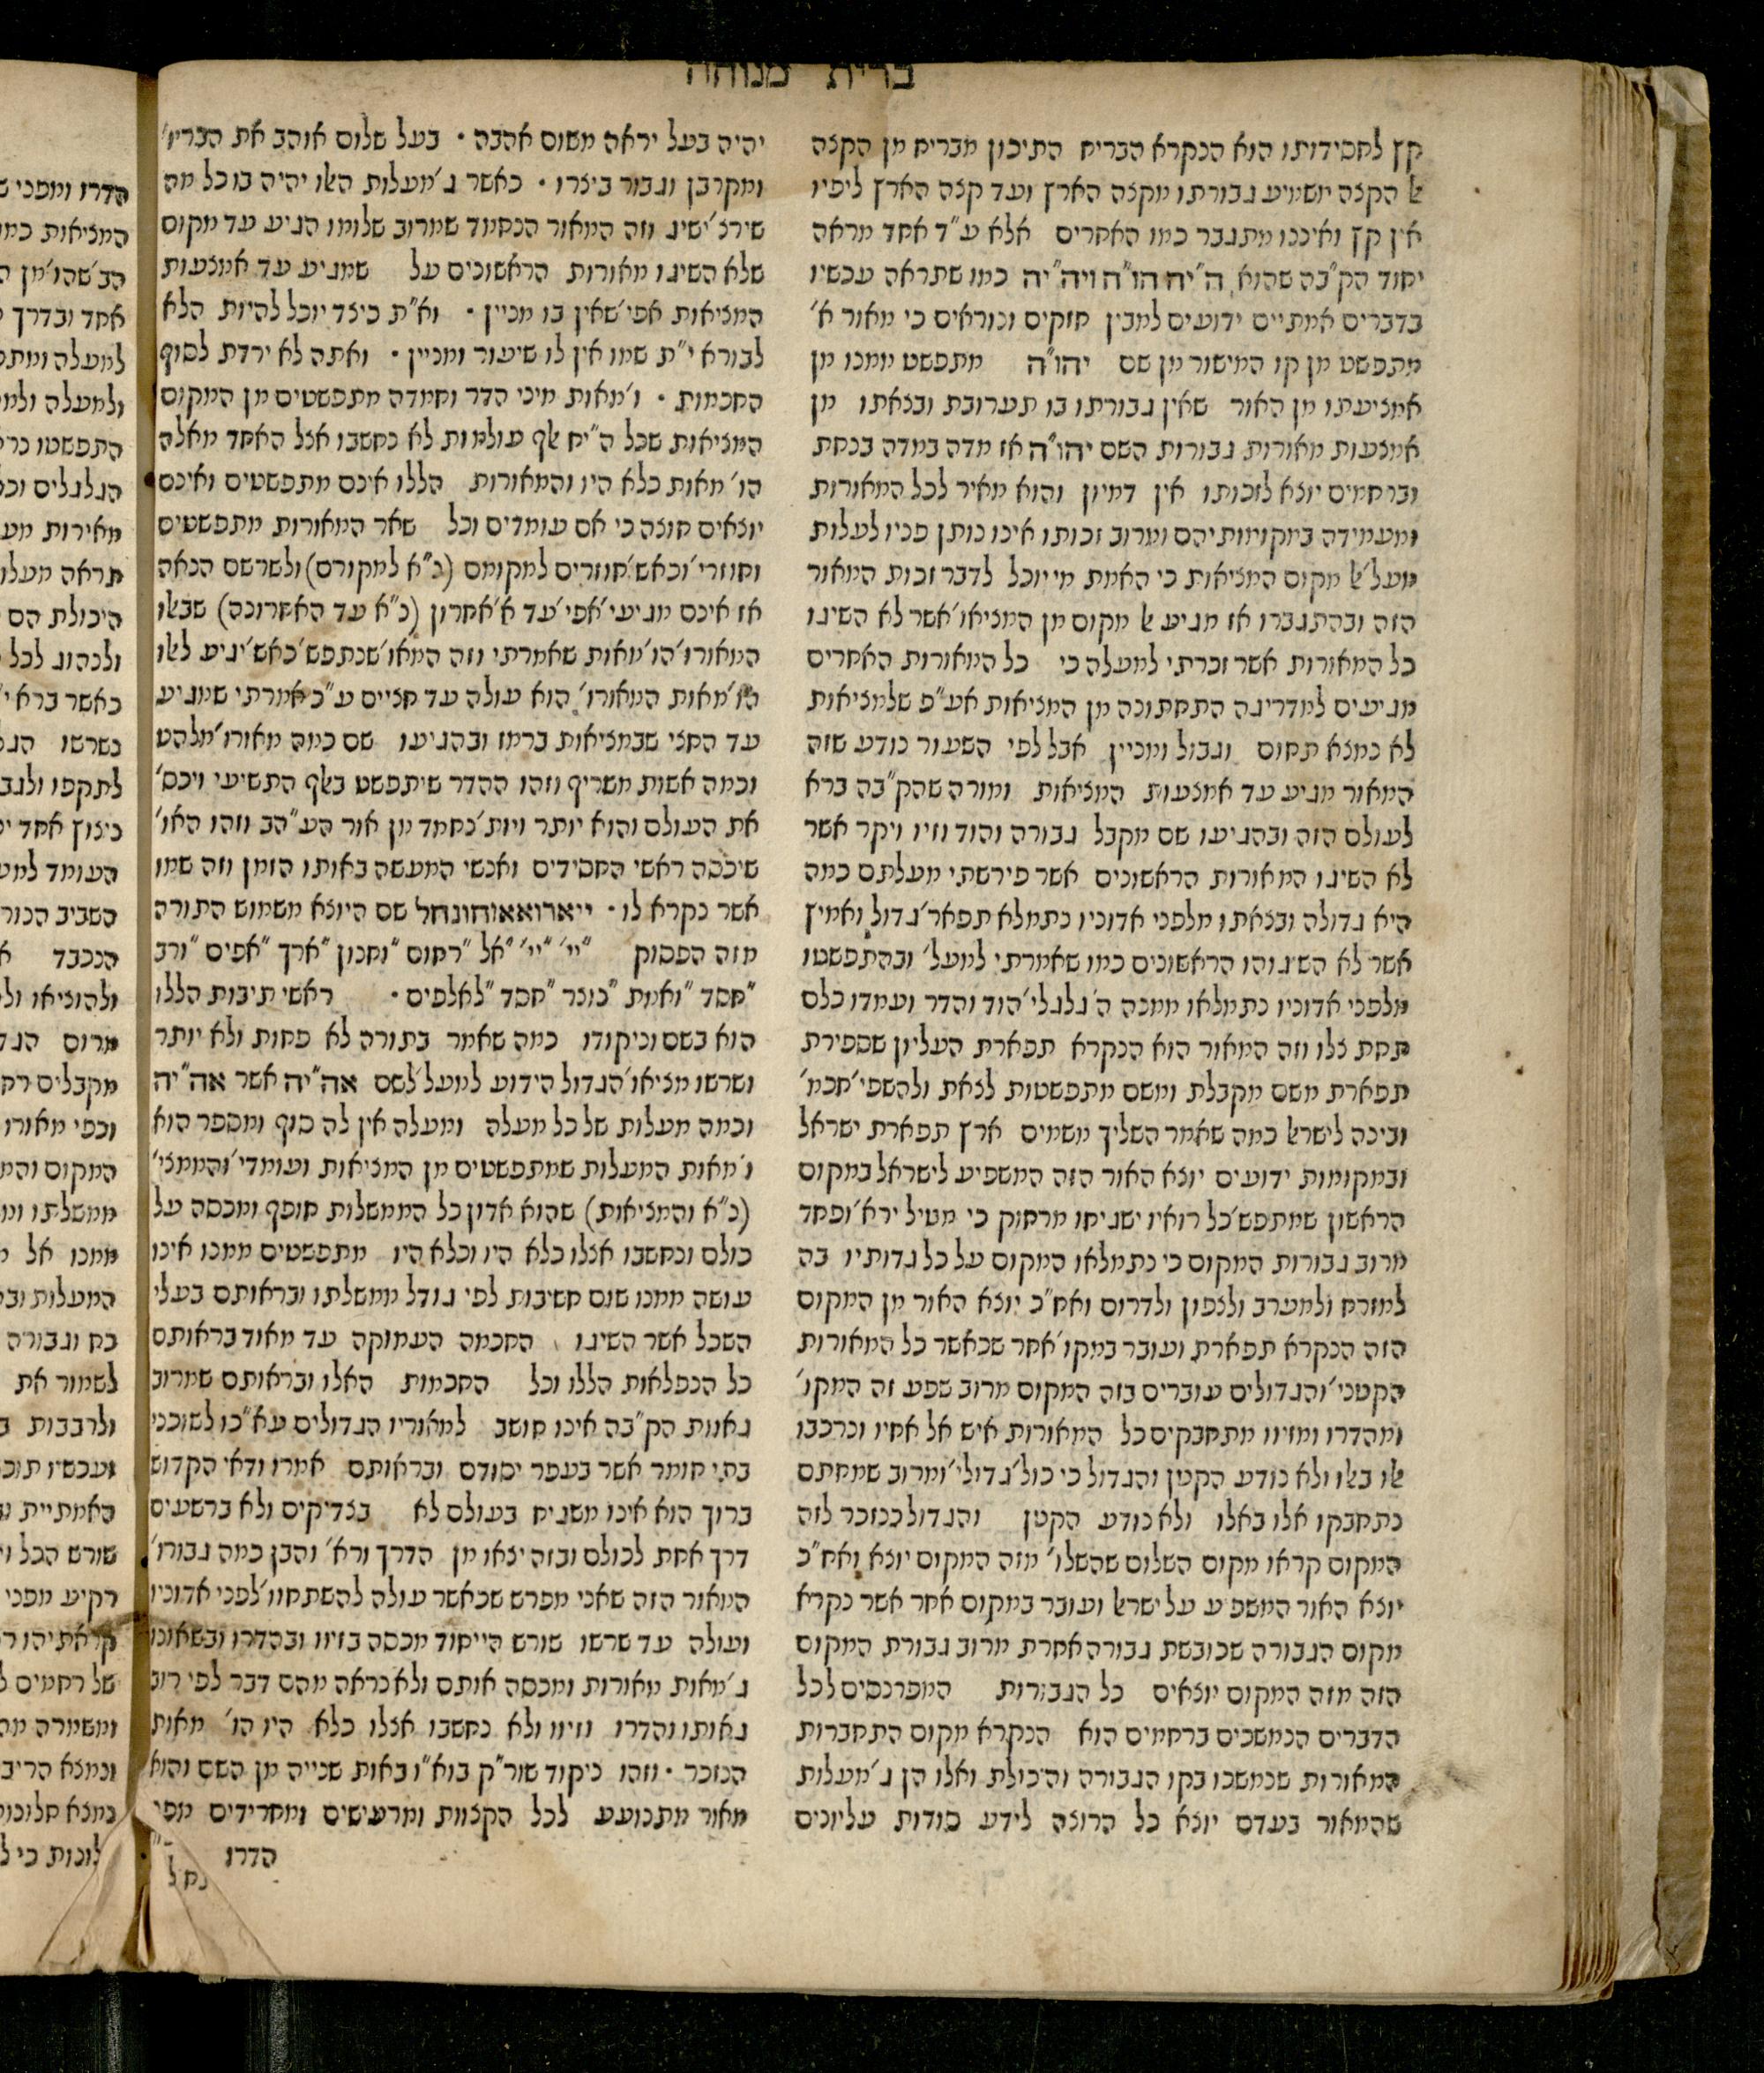 ברית מנוחה
קץ לחסידותו הוא הנקרא הבריח התיכון מבריח מן הקצה
אל הקצה ישמיע גבורתו מקצה הארץ ועד קצה הארץ ליפיו
אין קץ ואיננו מתגבר כמו האחרים אלא ע"ד אחד מראה
יחוד הק"בה שהוא ה"יח הו"ה ויה"יה כמו שתראה עכשיו
בדברים אמתיים ידועים למבין חזקים ונוראים כי מאור א'
מתפשט מן קו המישור מן שם יהו"ה מתפשט ממנו מן
אמציעתו מן האור שאין גבורתו בו תערובת ובצאתו מן
אמצעות מאורות גבורות השם יהו"ה אז מדה במדה בנחת
וברחמים יוצא לזכותו אין דמיון והוא מאיר לכל המאורות
ומעמידה במקומותיהם ומרוב זכותו אינו נותן פניו לעלות
מעל'אל מקום המציאות כי האמת מי יוכל לדבר זכות המאור
הזה ובהתגברו אז מגיע אל מקום מן המציאו'אשר לא השיגו
כל המאורות אשר זכרתי למעלה כי כל המאורות האחרים
מגיעים למדריגה התחתונה מן המציאות אע"פ שלמציאות
לא נמצא תחום וגבול ומניין אבל לפי השעור נודע שזה
המאור מגיע עד אמצעות המציאות ומורה שהק"בה ברא
לעולם הזה ובהגיעו שם מקבל גבורה והוד וזיו ויקר אשר
לא השיגו המאורות הראשונים אשר פירשתי מעלתם כמה
היא גדולה ובצאתו מלפני אדוניו נתמלא תפאר'גדול ואמיץ
אשר לא השיגוהו הראשונים כמו שאמרתי למעל' ובהתפשטו
מלפני אדוניו נתמלאו ממנה ה'גלגלי'הוד והדר ועמדו כלם
תחת צלו וזה המאור הוא הנקרא תפארת העליון שספירת
תפארת משם מקבלת ומשם מתפשטות לצאת ולהשפי'חכמ'
ובינה לישראל כמה שאמר השליך משמים ארץ תפארת ישראל
ובמקומות ידועים יוצא האור הזה המשפיע לישראל במקום
הראשון שמתפש'כל רואיו ישגיחו מרחוק כי מטיל ירא'ופחד
מרוב גבורות המקום כי נתמלאו המקום על כל גדותיו בה
למזרח ולמערב ולצפון ולדרום ואח"כ יוצא האור מן המקום
הזה הנקרא תפארת ועובר במקו'אחר שכאשר כל המאורות
הקטני'והגדולים עוברים בזה המקום מרוב שפע זה המקו'
ומהדרו ומזיוו מתחבקים כל המאורות איש אל אחיו ונרכבו
אלו באלו ולא נודע הקטן והגדול כי כול'גדולי'ומרוב שמחתם
נתחבקו אלו באלו ולא נודע הקטן והגדול כנזכר לזה
המקום קראו מקום השלום שהשלו' מזה המקום יוצא ואח"כ
יוצא האור המשפיע על ישראל ועובר במקום אחר אשר נקרא
מקום הגבורה שכובשת גבורה אחרת מרוב גבורת המקום
הזה מזה המקום יוצאים כל הגבורות המפרנסים לכל
הדברים הנמשכים ברחמים הוא הנקרא מקום התחברות
המאורות שנמשכו בקו הגבורה והיכולת ואלו הן ג'מעלות
שהמאור בעדם יוצא כל הרוצה לידע סודות עליונים
יהיה בעל יראה משום אהבה · בעל שלום אוהב את הבריו'
ומקרבן וגבור ביצרו · כאשר ג'מעלות האלו יהיה בו כל מה
שירצ'ישיג וזה המאור הנחמד שמרוב שלומו הגיע עד מקום
שלא השיגו מאורות הראשונים על שמגיע עד אמצעות
המציאות אפי'שאין בו מניין · וא"ת כיצד יוכל להיות הלא
לבורא י"ת שמו אין לו שיעור ומניין · ואתה לא ירדת לסוף
החכמות · ו'מאות מיני הדר וחמדה מתפשטים מן המקום
המציאות שכל ה"יח אלף עולמות לא נחשבו אצל האחד מאלה
הו' מאות כלא היו והמאורות הללו אינם מתפשטים ואינם
יוצאים חוצה כי אם עומדים וכל שאר המאורות מתפשטים
וחוזרי'וכאש'חוזרים למקומם (נ"א למקורם) ולשרשם הנאה
אז אינם מגיעי'אפי'עד א'אחרון (נ"א עד האחרונה) שבאלו
המאורו'הו'מאות שאמרתי וזה המאו'שנתפש'כאש'יגיע לאלו
הו'מאות המאורו' הוא עולה עד חציים ע"כ אמרתי שמגיע
עד החצי שבמציאות ברמז ובהגיעו שם כמה מאורו'מלהט
וכמה אשות משריף וזהו ההדר שיתפשט באלף התשיעי ויכס'
את העולם והוא יותר ויות'נחמד מן אור הע"הב וזהו האו'
שיכסה ראשי החסידים ואנשי המעשה באותו הזמן וזה שמו
אשר נקרא לו · ייארואאוחונחל שם היוצא משמוש התורה
מזה הפסוק "יי' "יי' "אל "רחום "וחנון "ארך "אפים "ורב
"חסד "ואמת "נוצר "חסד "לאלפים · ראשי תיבות הללו
הוא בשם וניקודו כמה שאמר בתורה לא פחות ולא יותר
ושרשו מציאו'הגדול הידוע למעל'לשם אה"יה אשר אה"יה
וכמה מעלות של כל מעלה ומעלה אין לה סוף ומספר הוא
ו'מאות המעלות שמתפשטים מן המציאות ועומדי'והממצי'
(נ"א והמציאות) שהוא אדון כל הממשלות חופף ומכסה על
כולם ונחשבו אצלו כלא היו וכלא היו מתפשטים ממנו אינו
עושה ממנו שום חשיבות לפי גודל ממשלתו ובראותם בעלי
השכל אשר השיגו החכמה העמוקה עד מאוד בראותם
כל הנפלאות הללו וכל החכמות האלו ובראותם שמרוב
גאות הק"בה אינו חושב למאוריו הגדולים עא"כו לשוכני
בתי חומר אשר בעפר יסודם ובראותם אמרו ודאי הקדוש
ברוך הוא אינו משגיח בעולם לא בצדיקים ולא ברשעים
דרך אחת לכולם ובזה יצאו מן הדרך ורא' והבן כמה גבורו'
המאור הזה שאני מפרש שכאשר עולה להשתחוו'לפני אדוניו
ועולה עד שרשו שורש הייחוד מכסה בזיוו ובהדרו ובשאונו
ג'מאות מאורות ומכסה אותם ולא נראה מהם דבר לפי רוב
גאותו והדרו וזיוו ולא נחשבו אצלו כלא היו הו' מאות
הנזכר · וזהו ניקוד שור"ק בוא"ו באות שנייה מן השם והוא
מאור מתנועע לכל הקצוות ומרעישים ומחרידים מפי
הדרו
הדרו ומפני
המציאות כמו
הב'שהו'מן
אחד ובדרך
למעלה ומתפ
ולמעלה ולמ
התפשטו כרי
הגלגלים וכ
מאירות מע
תראה מעלו
היכולת הם
ולכהוג לכל
כאשר ברא י
כשרשו הגד
לתקפו ולגב
כיצוץ אחד
העומד למע
השביב הנור
הנכבד
ולהוציאו ול
מרום הגד
מקבלים רק
וכפי מאורו
המקום והמ
ממשלתו ומ
ממנו אל
המעלות ובר
כח וגבורה
לשמור את
ולרבבות
ועכשיו תוכ
האמתיית
שורש הכל וי
רקיע מפני
קראתיהו
של רחמים
ומשמרה מה
ונמצא הריב
נמצא חלונות
לונות כי